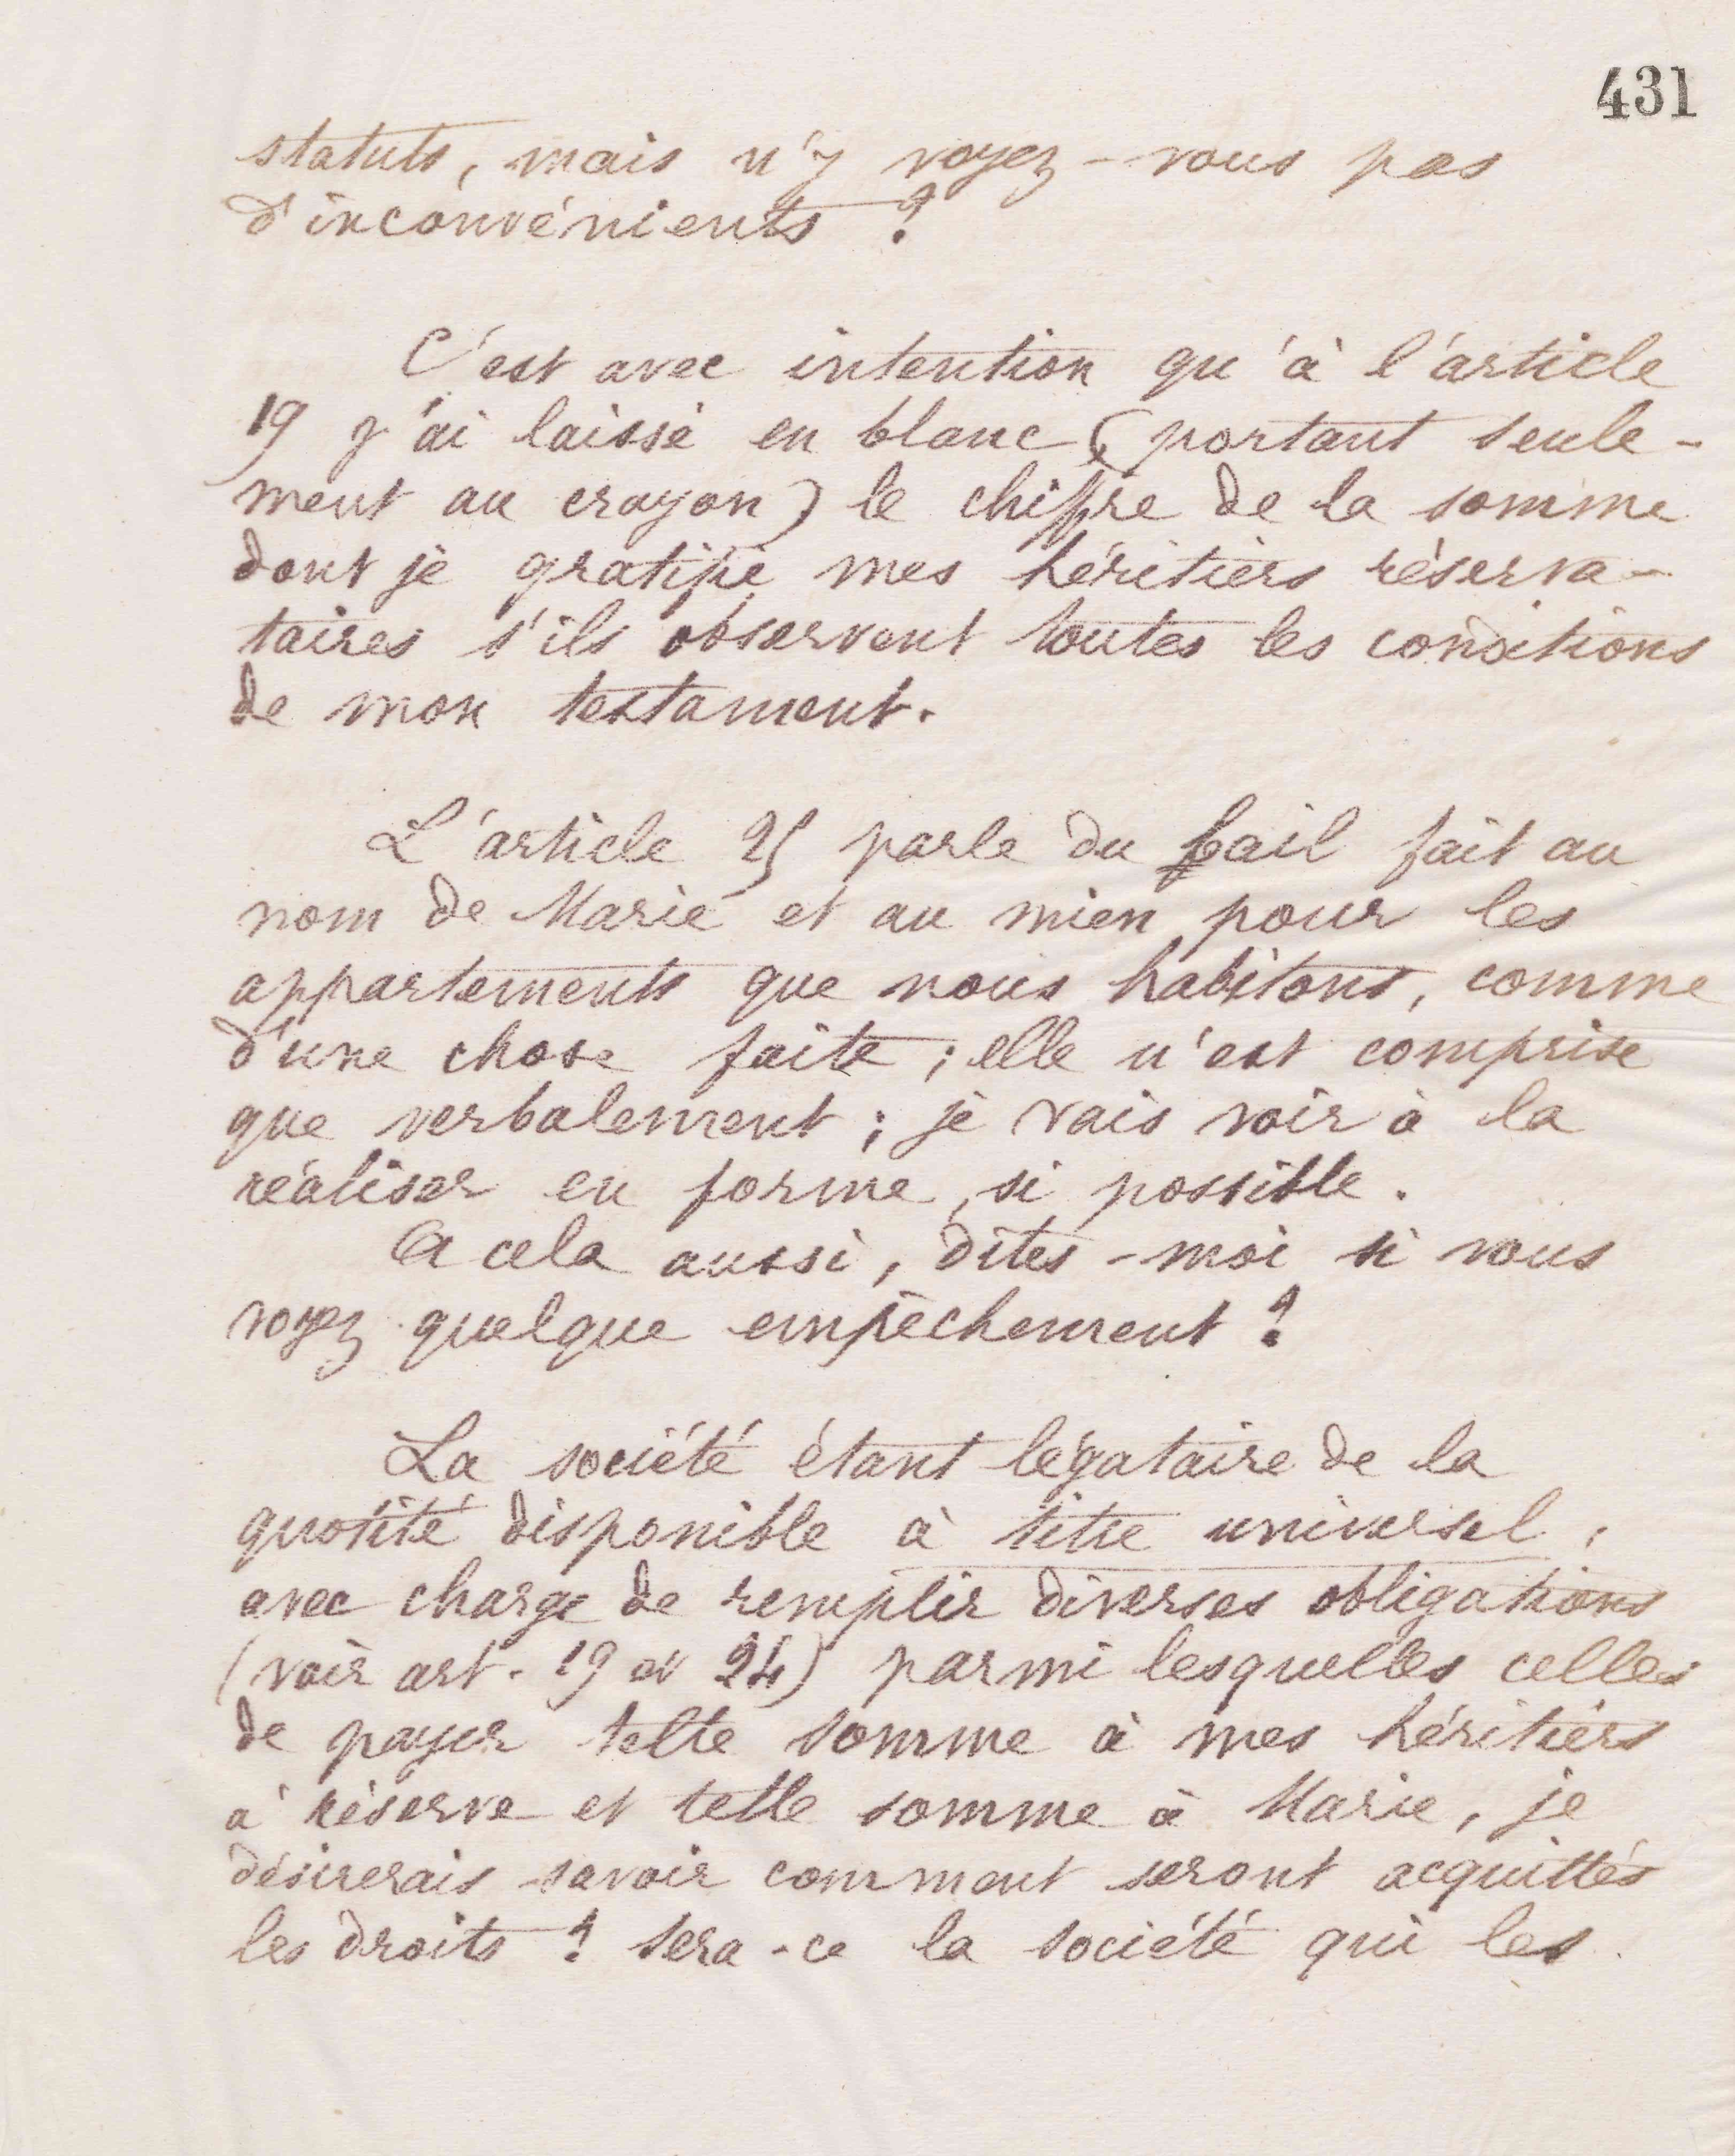 431
statuts, mais n'y voyez-vous pas
d'inconvénients ?
C'est avec intention qu'à l'article
19 j'ai laissé en blanc (portant seule-
ment au crayon) le chiffre de la somme
dont je gratifie mes héritiers réserva-
taires s'ils observent toutes les conditions
de mon testament.
L'article 25 parle du bail fait au
nom de Marie et au mien pour les
appartements que nous habitons, comme
d'une chose faite ; elle n'est comprise
que verbalement ; je vais voir à la
réaliser en forme, si possible.
A cela aussi, dites-moi si vous
voyez quelque empêchement ?
La société étant légataire de la
quotité disponible à titre universel,
avec charge de remplir diverses obligations
(voir art. 19 et 24) parmi lesquelles celles
de payer telle somme à mes héritiers
à réserve et telle somme à Marie, je
désirerais savoir comment seront acquittés
les droits ? sera-ce la société qui les